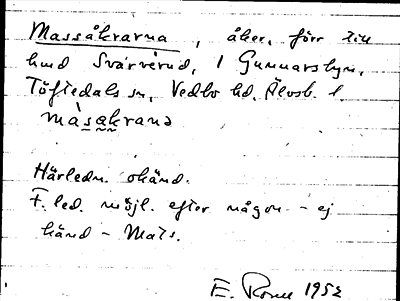 Massåkrarna, åker, förr till
hmd Svärverud, i Gunnarsbyn,
Töftedals sn, Vedbo hd. Älvsb. l.
màsakrana
Härledn. okänd.
F. led. möjl. efter någon - ej
känd - Mats.
E. 1952